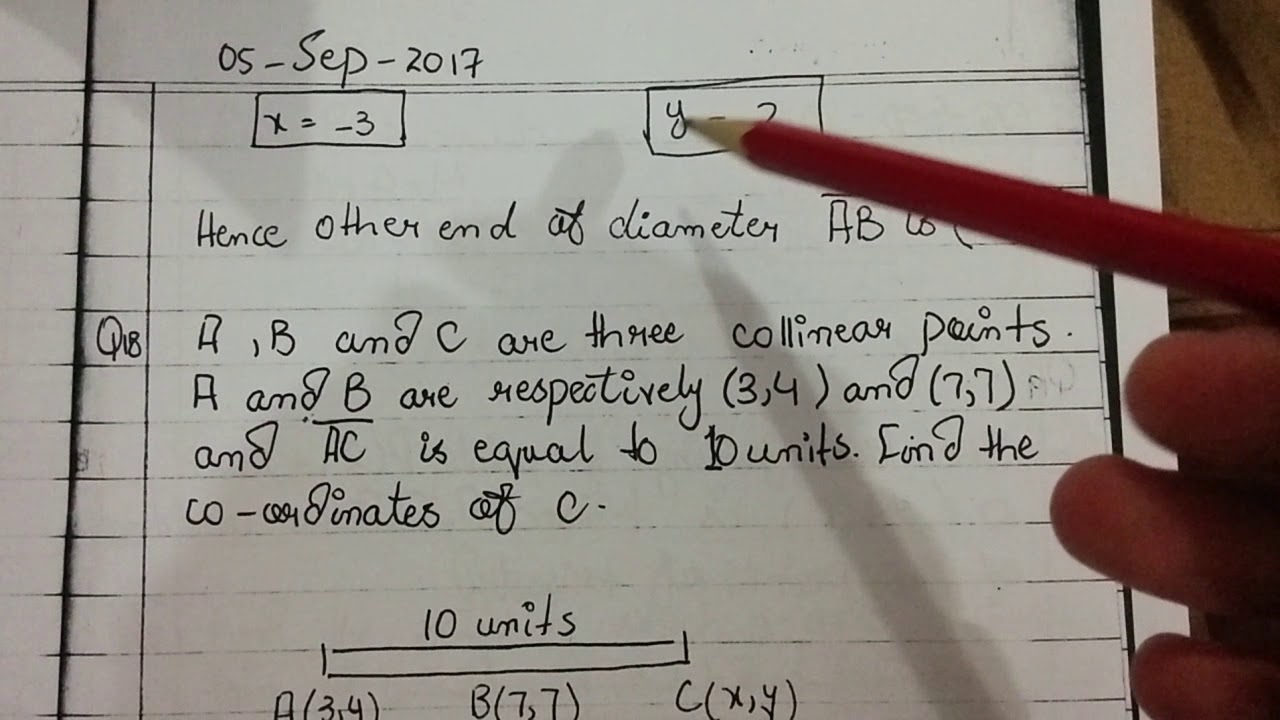 05-Sep-2017
x = -3
y = 2
Hence other end of diameter AB is (
Q18 A, B and C are three collinear points.
A and B are respectively (3,4) and (7,7)
and AC is equal to 10 units. Find the
co-ordinates of C.
10 units
A(3,4) B(7,7) C(x,y)